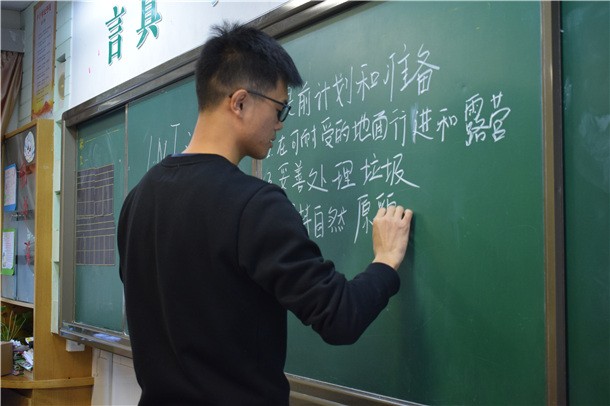 言具
LNT
前计划和准备
在可耐受的地面行进和露营
妥善处理垃圾
持自然原